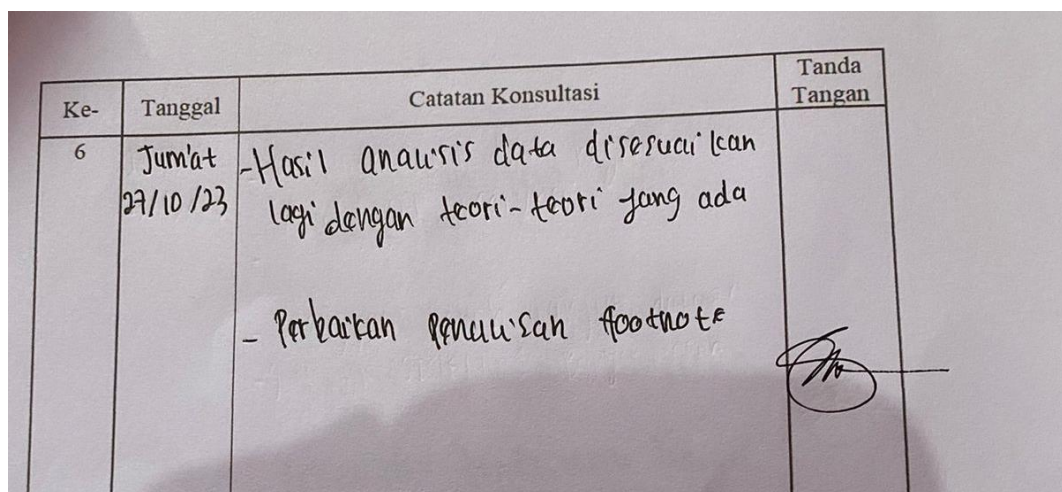 Ke- Tanggal Catatan Konsultasi Tanda Tangan
6 Jum'at - Hasil analisis data disesuaikan
27/10/23 lagi dengan teori-teori yang ada
- Perbaikan penulisan footnote